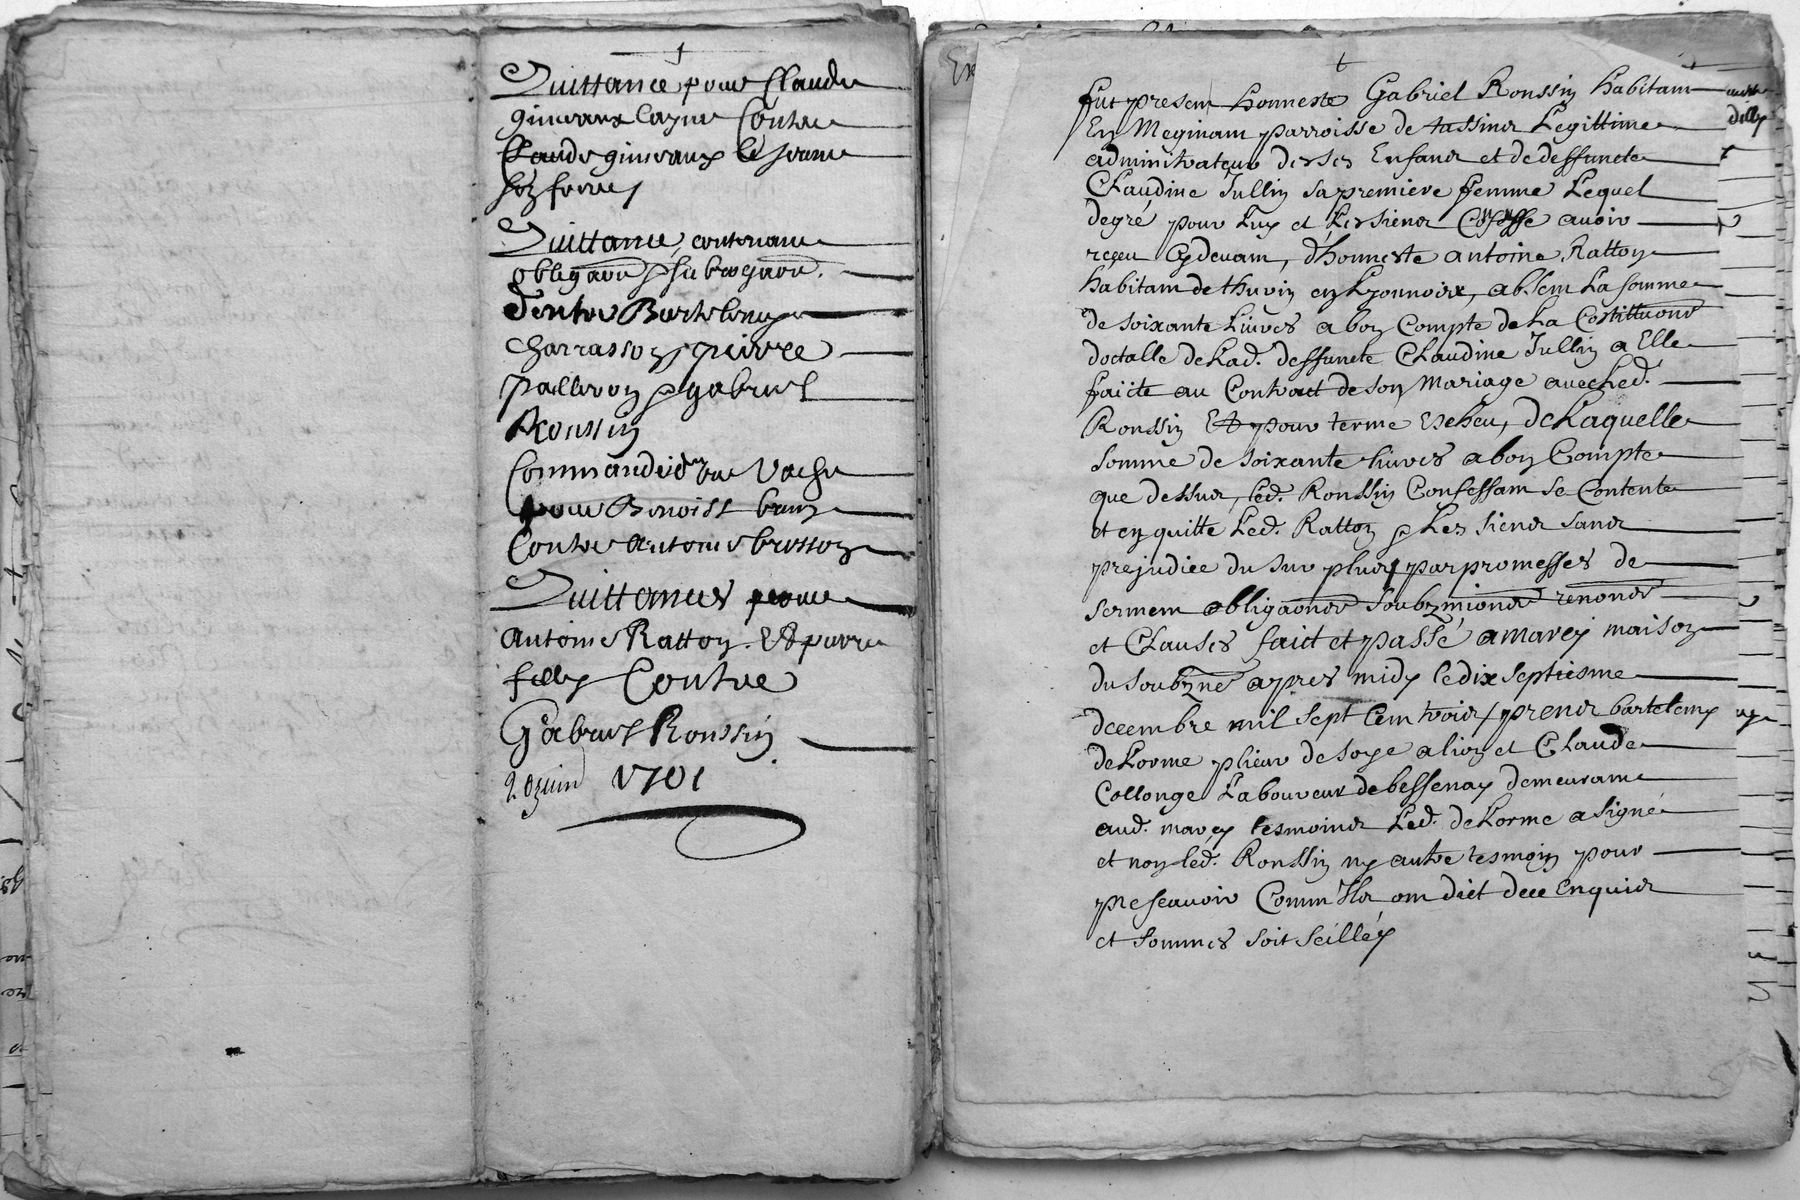 Quittance pour Claude
gimeaux layné Contre
Claude gimeaux le jeune
son frere
Quittance contenant
obligaon & subrogaon
d'entre Bartelemy
charrasson, pierre
pallieron & gabriel
Roussin
Commandé d'une Vache
pour Benoist brun
Contre antoine brosson
Quittances pour
antoine Ratton Et pierre
filly Contre
Gabriel Roussin
20 juin 1701
fut present honneste Gabriel Roussin habitant
En Meginam parroisse de tassins Legittime
administrateur de ses Enfans et de deffuncte
Claudine Jullin sa premiere femme Lequel
de gré pour Luy et Les siens Confesse avoir
reçeu Cy devant, d'honneste antoine Ratton
habitant de thurin en Lyonnoix, absent La somme
de soixante Livres a bon Compte de La Costittuons
doctalle de Lad. deffuncte Claudine Jullin a Elle
faicte au Contract de son Mariage avec Led.
Roussin Et pour terme Escheu, de Laquelle
somme de soixante livres a bon Compte
que dessus, led. Roussin Confessant se Contente
et en quitte Led. Ratton & Les siens sans
prejudice du sur plus par promesses de
serment obligaons soubzmions renons
et Clauses fait et passé a marcy maison
du soubzné apres midy le dix septiesme
decembre mil sept Cent trois, presens bartelemy
de Lorme plieur de soye a lion et Claude
Collonge Laboureur de bessenay demeurant
aud. marcy tesmoins Led. de Lorme a signé
et non led. Roussin ny autre tesmoin pour
ne scavoir Comm' Ils ont dict de ce Enquis
et sommes soit seilléy